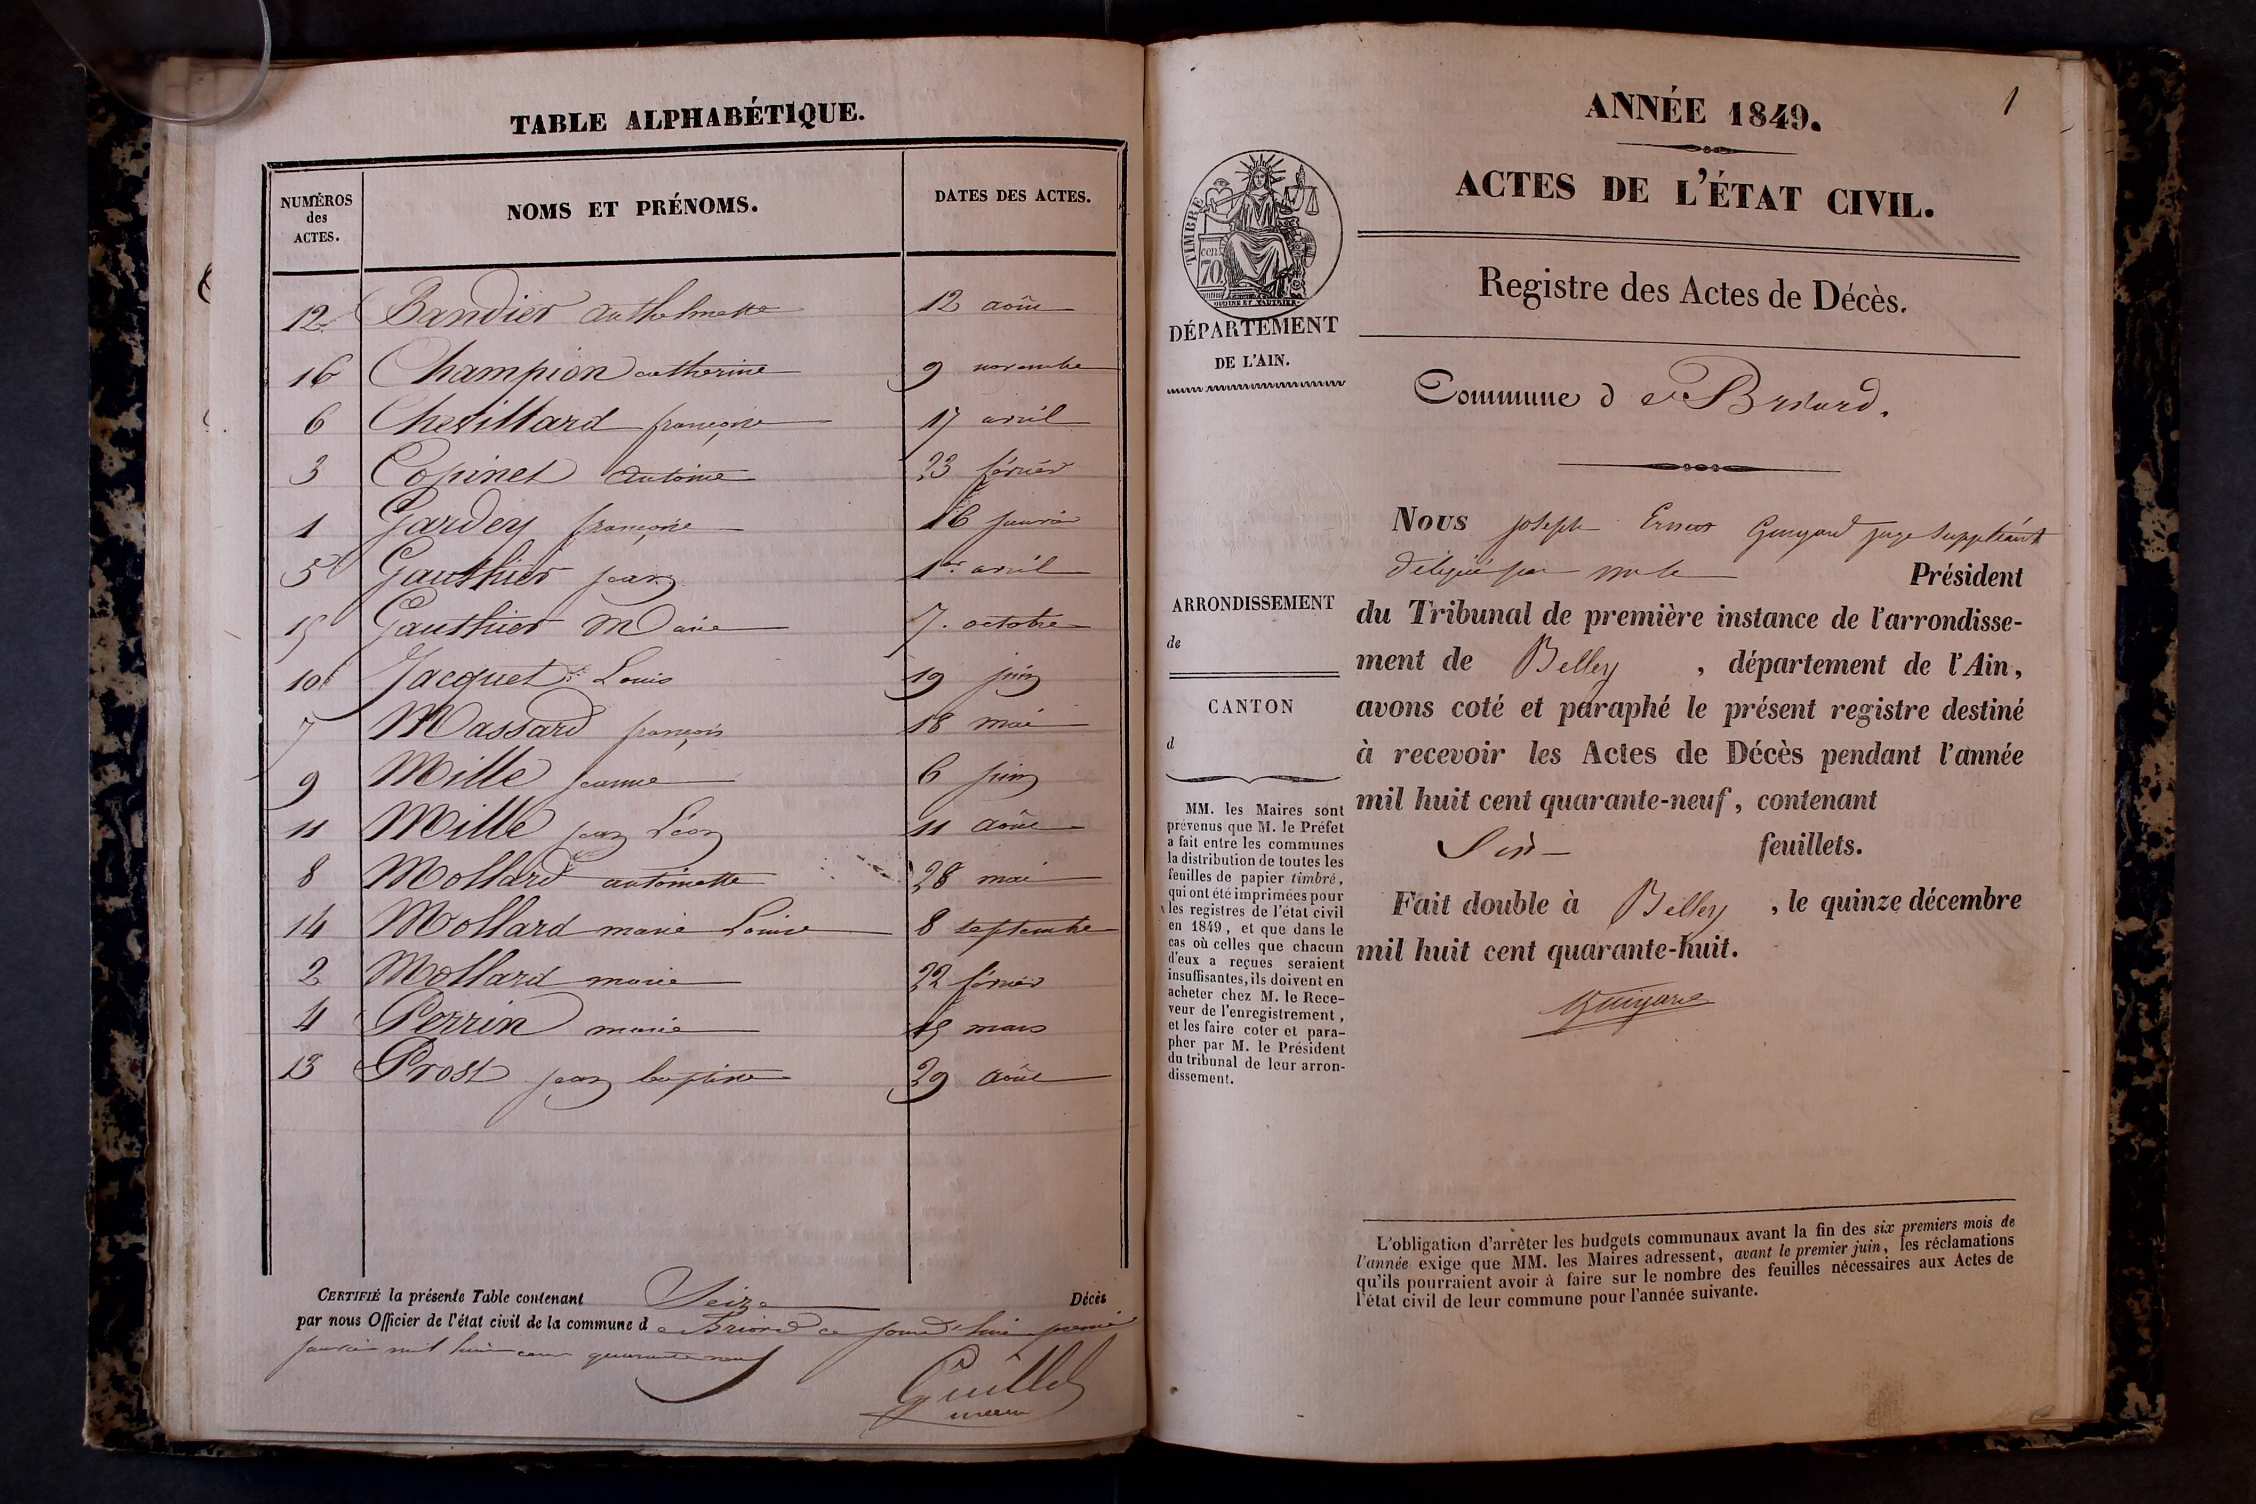 TABLE ALPHABÉTIQUE.
NUMÉROS des ACTES. NOMS ET PRÉNOMS. DATES DES ACTES.
12 Bandier Anthelmette 12 août
16 Champion catherine 9 novembre
6 Chevillard françoise 17 avril
3 Copinet Antoine 23 février
1 Gardey françoise 16 janvier
5 Gauthier jean 1er avril
15 Gauthier Marie 7. octobre
10 Jacquet Louis 19 juin
7 Massard françois 18 mai
9 Mille jeanne 6 juin
11 Mille jean Léon 11 août
8 Mollard antoinette 28 mai
14 Mollard marie Louise 8 septembre
2 Mollard marie 22 février
4 Perrin marie 15 mars
13 Prost jean baptiste 29 août
CERTIFIÉ la présente Table contenant Seize Décès
par nous Officier de l'état civil de la commune d e Briord ce jourd'hui premier
janvier mil huit cent quarante neuf
maire
1
ANNÉE 1849.
ACTES DE L'ÉTAT CIVIL.
Registre des Actes de Décès.
TIMBRE
cen. 70
DÉPARTEMENT
DE L'AIN.
Commune d e Briord.
Nous joseph Ernest Guigard juge suppléant
délégué par mr le Président
du Tribunal de première instance de l'arrondisse-
ment de Belley, département de l'Ain,
avons coté et paraphé le présent registre destiné
à recevoir les Actes de Décès pendant l'année
mil huit cent quarante-neuf, contenant
Six feuillets.
Fait double à Belley, le quinze décembre
mil huit cent quarante-huit.
Guigard
ARRONDISSEMENT
de
CANTON
d
MM. les Maires sont
prévenus que M. le Préfet
a fait entre les communes
la distribution de toutes les
feuilles de papier timbré,
qui ont été imprimées pour
les registres de l'état civil
en 1849, et que dans le
cas où celles que chacun
d'eux a reçues seraient
insuffisantes, ils doivent en
acheter chez M. le Rece-
veur de l'enregistrement,
et les faire coter et para-
pher par M. le Président
du tribunal de leur arron-
dissement.
L'obligation d'arrêter les budgets communaux avant la fin des six premiers mois de
l'année exige que MM. les Maires adressent, avant le premier juin, les réclamations
qu'ils pourraient avoir à faire sur le nombre des feuilles nécessaires aux Actes de
l'état civil de leur commune pour l'année suivante.